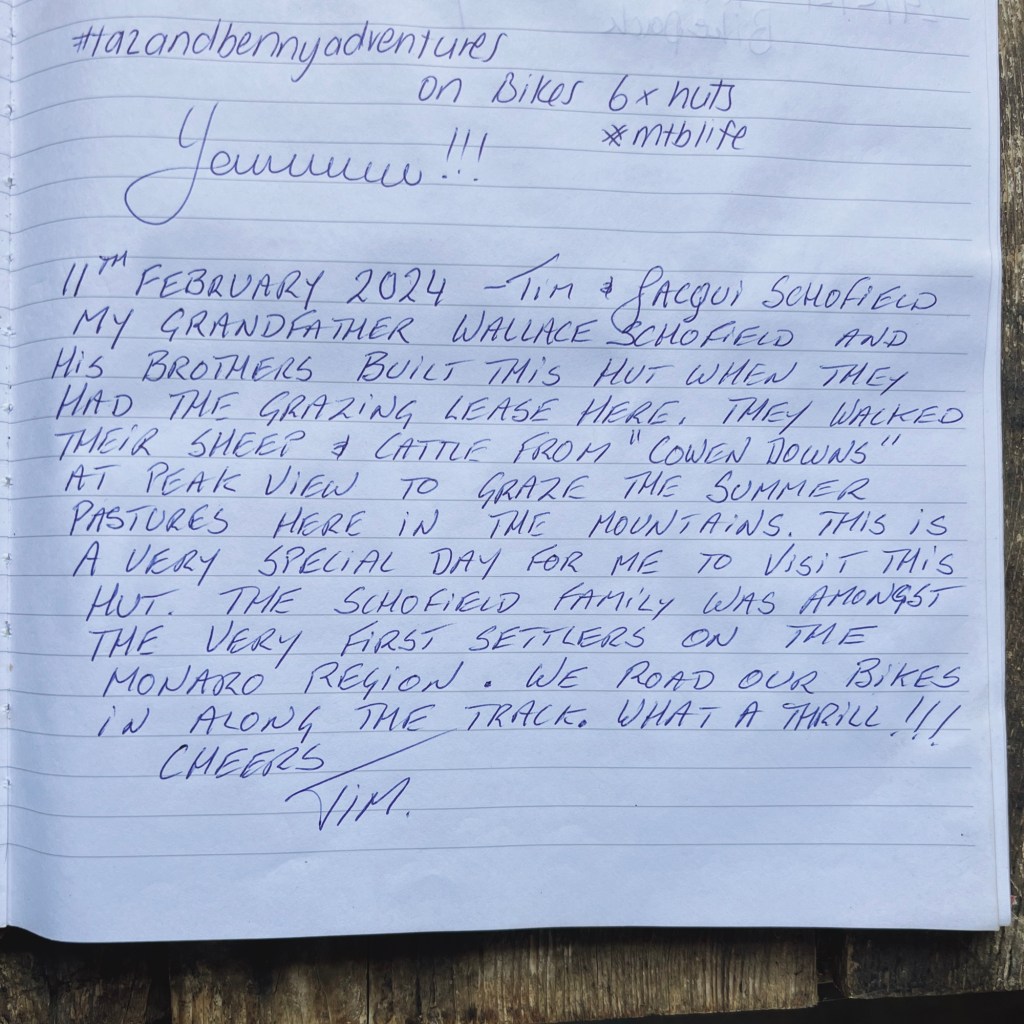 #tazandbennyadventures
on Bikes 6x huts
#mtblife
11TH FEBRUARY 2024 - TIM & JACQUI SCHOFIELD
MY GRANDFATHER WALLACE SCHOFIELD AND
HIS BROTHERS BUILT THIS HUT WHEN THEY
HAD THE GRAZING LEASE HERE. THEY WALKED
THEIR SHEEP & CATTLE FROM "COWEN DOWNS"
AT PEAK VIEW TO GRAZE THE SUMMER
PASTURES HERE IN THE MOUNTAINS. THIS IS
A VERY SPECIAL DAY FOR ME TO VISIT THIS
HUT. THE SCHOFIELD FAMILY WAS AMONGST
THE VERY FIRST SETTLERS ON THE
MONARO REGION. WE ROAD OUR BIKES
IN ALONG THE TRACK. WHAT A THRILL!!!
CHEERS
TIM.